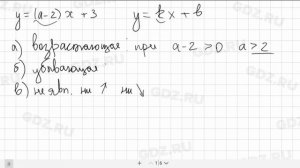 y = (a-2) x + 3 y = kx + b
а) возрастающая при a-2 > 0 a > 2
б) убывающая
в) не явл. ни ↑ ни ↘
GDZ.RU